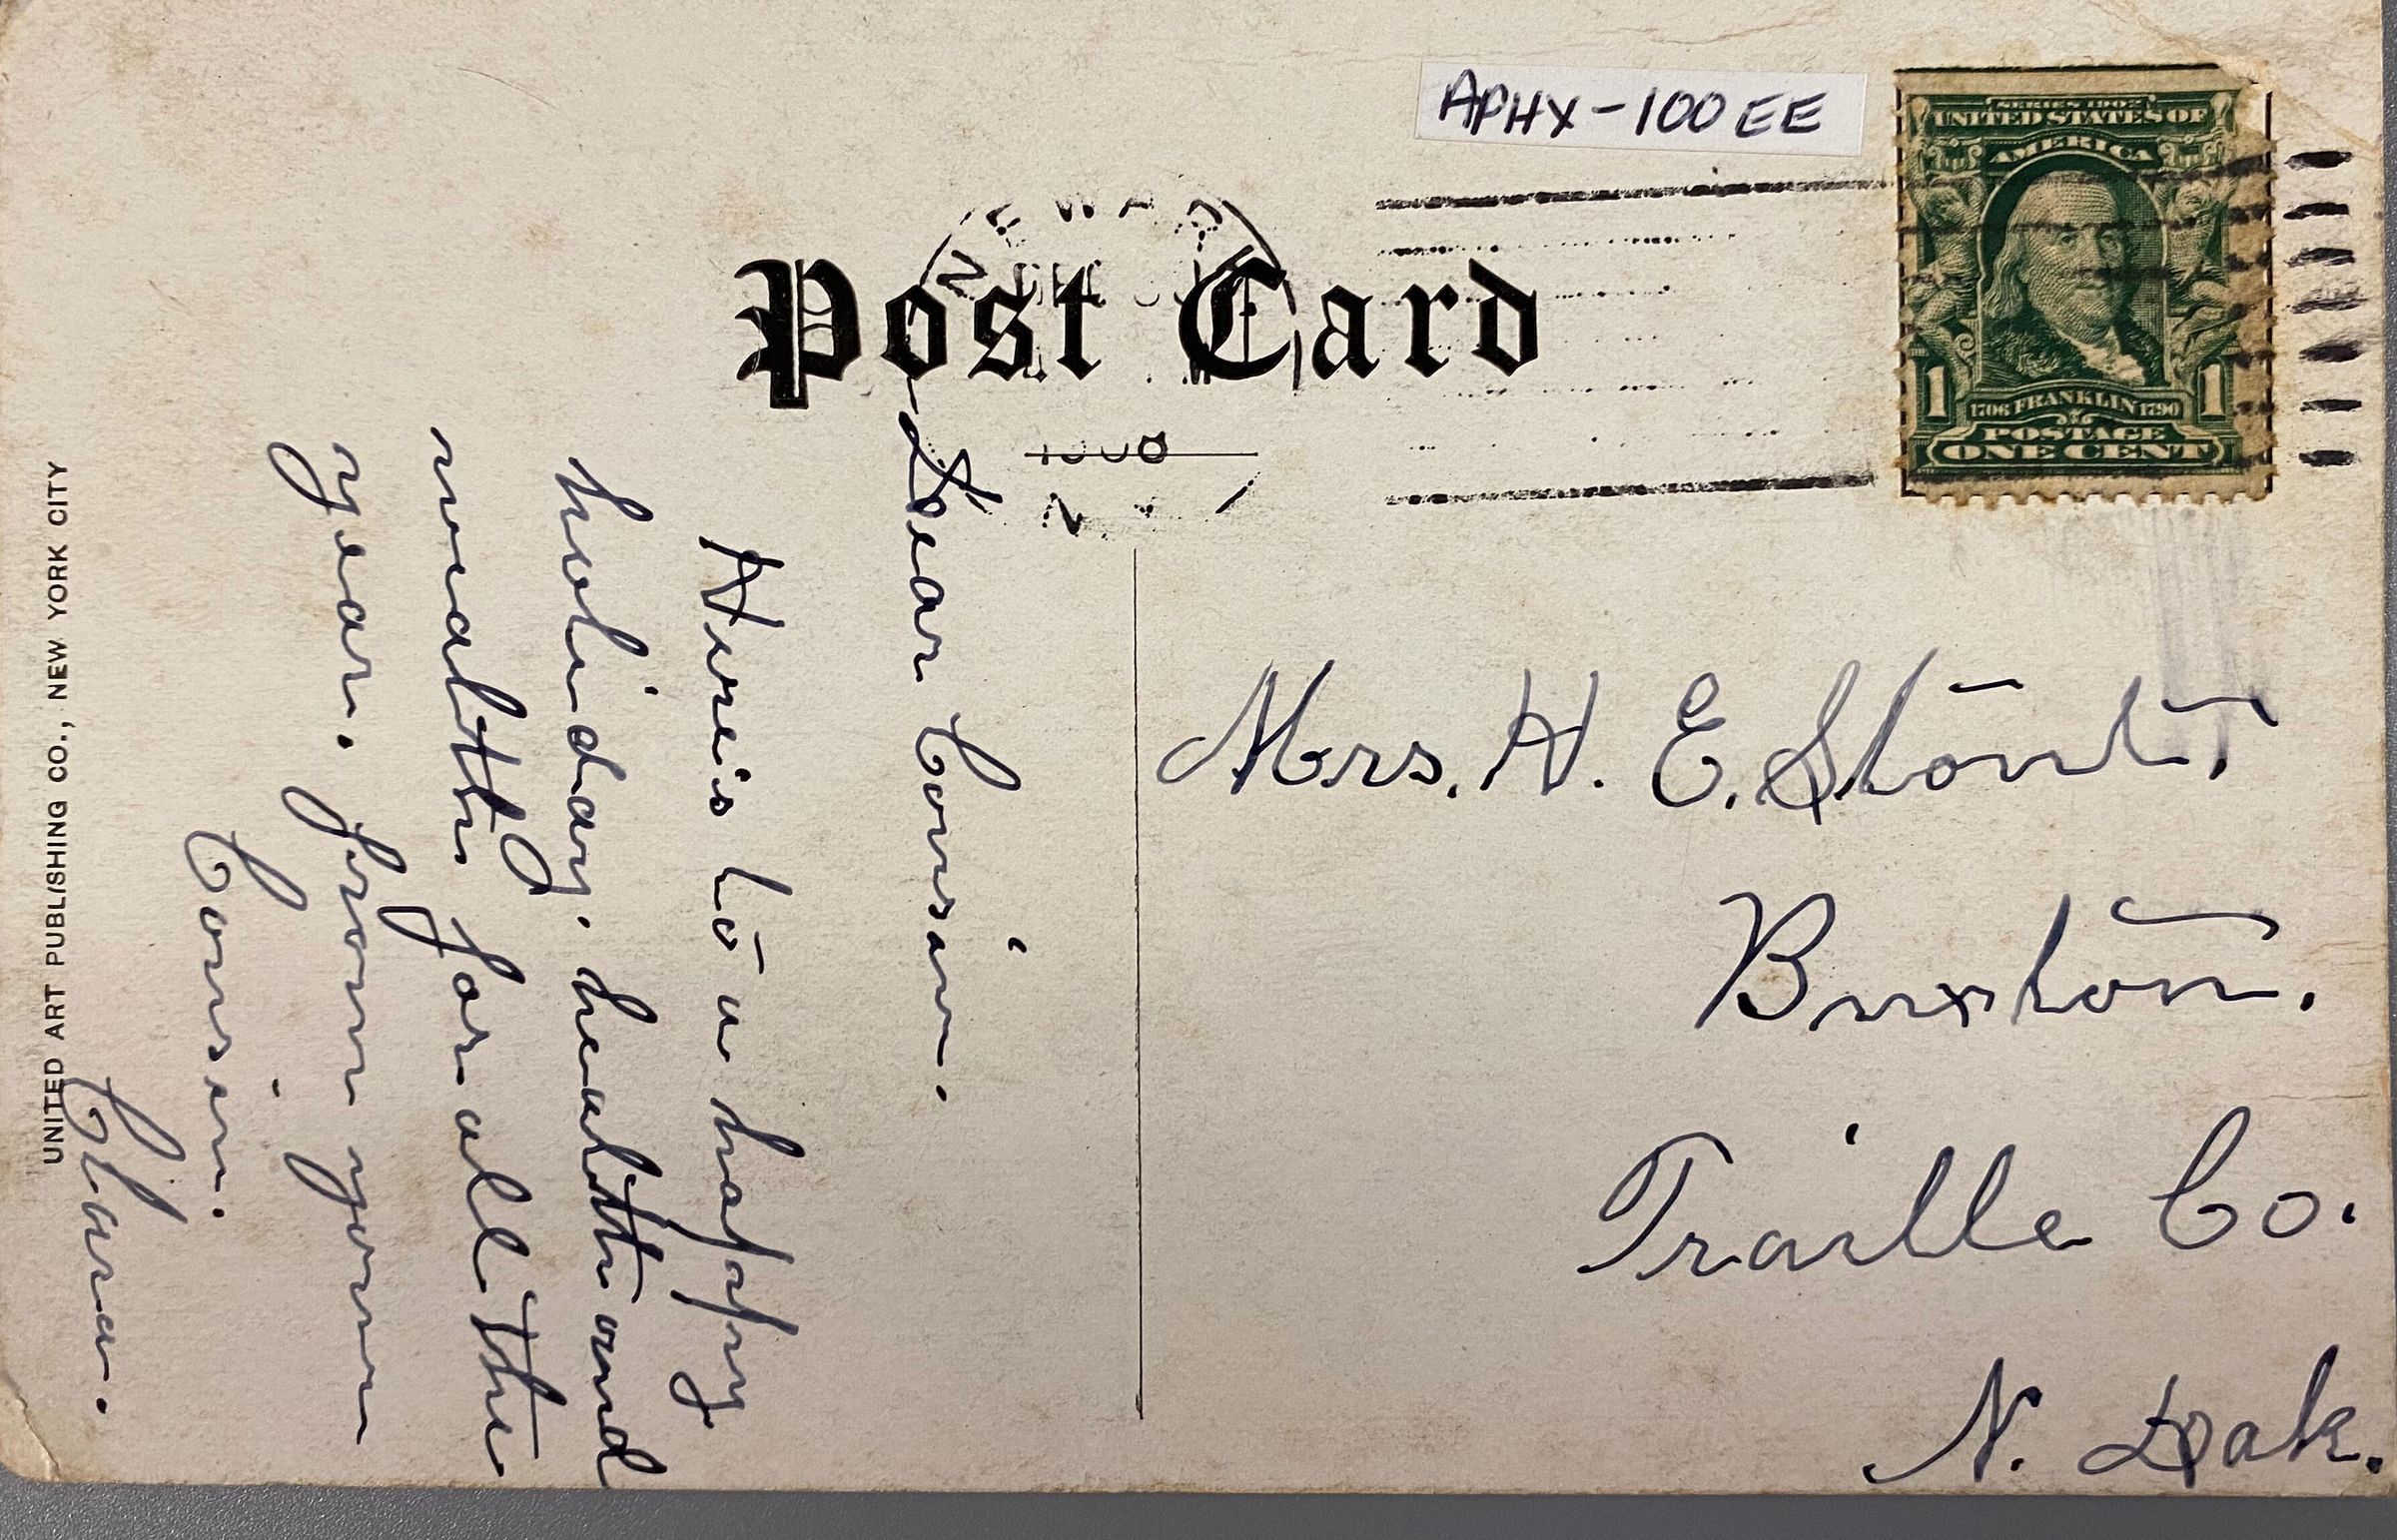 APHX-100EE
SERIES 1902
UNITED STATES OF
AMERICA
1 1706 FRANKLIN 1790 1
POSTAGE
ONE CENT
Post Card
Dear Cousin.
Here is to a happy
holinday. health and
wealth for all the
year. from your
Cousin.
Clara.
Mrs. H. E.
Buxton.
Traille Co.
N. Dak.
UNITED ART PUBLISHING CO., NEW YORK CITY